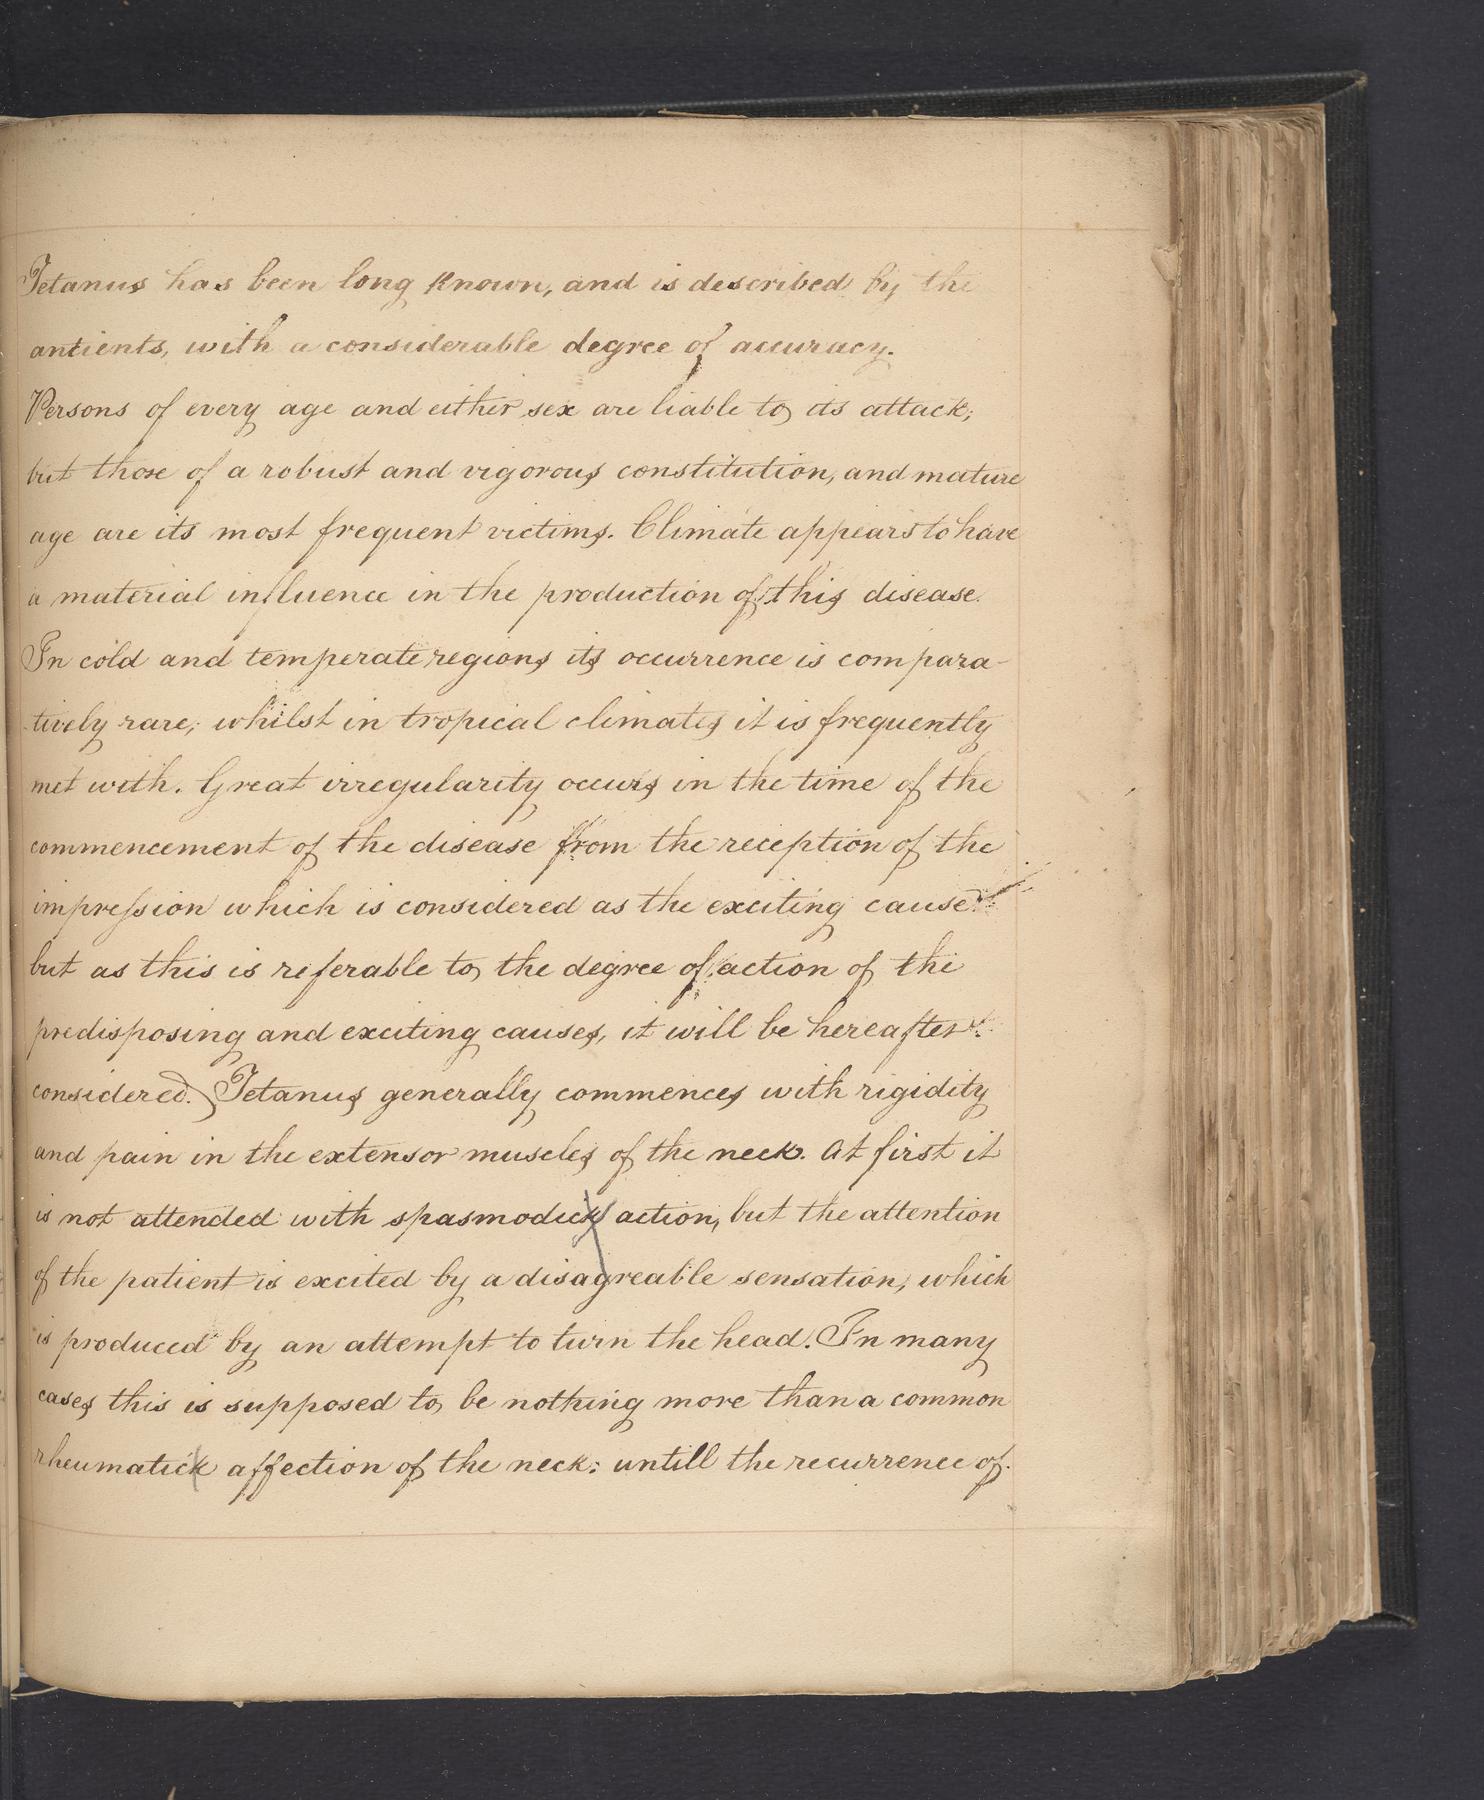 Tetanus has been long known, and is described by the
antients, with a considerable degree of accuracy.
Persons of every age and either sex are liable to its attack;
but those of a robust and vigorous constitution, and mature
age are its most frequent victims. Climate appears to have
a material influence in the production of this disease.
In cold and temperate regions its occurrence is compara-
-tively rare; whilst in tropical climates it is frequently
met with. Great irregularity occurs in the time of the
commencement of the disease from the reception of the
impression which is considered as the exciting cause.
but as this is referable to the degree of action of the
predisposing and exciting causes, it will be hereafter
considered. Tetanus generally commences with rigidity
and pain in the extensor muscles of the neck. At first it
is not attended with spasmodick action, but the attention
of the patient is excited by a disagreable sensation, which
is produced by an attempt to turn the head. In many
cases this is supposed to be nothing more than a common
rheumatick affection of the neck: untill the recurrence of